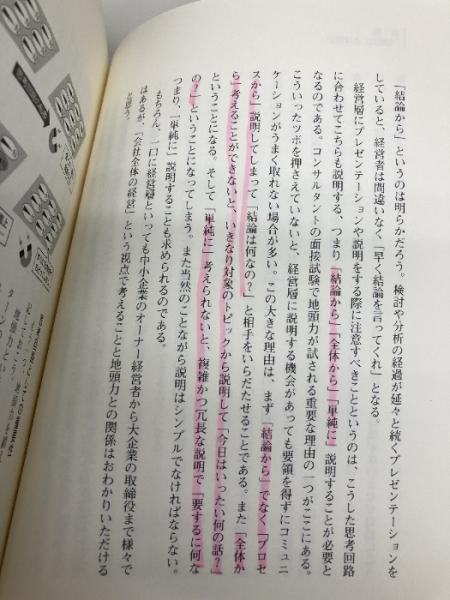 「結論から」というのは明らかだろう。検討や分析の経過が延々と続くプレゼンテーションを
していると、経営者は間違いなく、「早く結論を言ってくれ」となる。
経営層にプレゼンテーションや説明をする際に注意すべきことというのは、こうした思考回路
に合わせてこちらも説明する、つまり「結論から」「全体から」「単純に」説明することが必要と
なるのである。コンサルタントの面接試験で地頭力が試される重要な理由の一つがここにある。
こういったツボを押さえていないと、経営層に説明する機会があっても要領を得ずにコミュニ
ケーションがうまく取れない場合が多い。この大きな理由は、まず「結論から」でなく「プロセ
スから」説明してしまって「結論は何なの？」と相手をいらだたせることである。また「全体か
ら」考えることができないと、いきなり対象のトピックから説明して「今日はいったい何の話？」
ということになる。そして「単純に」考えられないと、複雑かつ冗長な説明で「要するに何な
の？」ということになってしまう。また当然のことながら説明はシンプルでなければならない。
つまり、「単純に」説明することも求められるのである。
もちろん、一口に経営層といっても中小企業のオーナー経営者から大企業の取締役まで様々で
はあるが、「会社全体の経営」という視点で考えることと地頭力との関係はおわかりいただける
と思う。